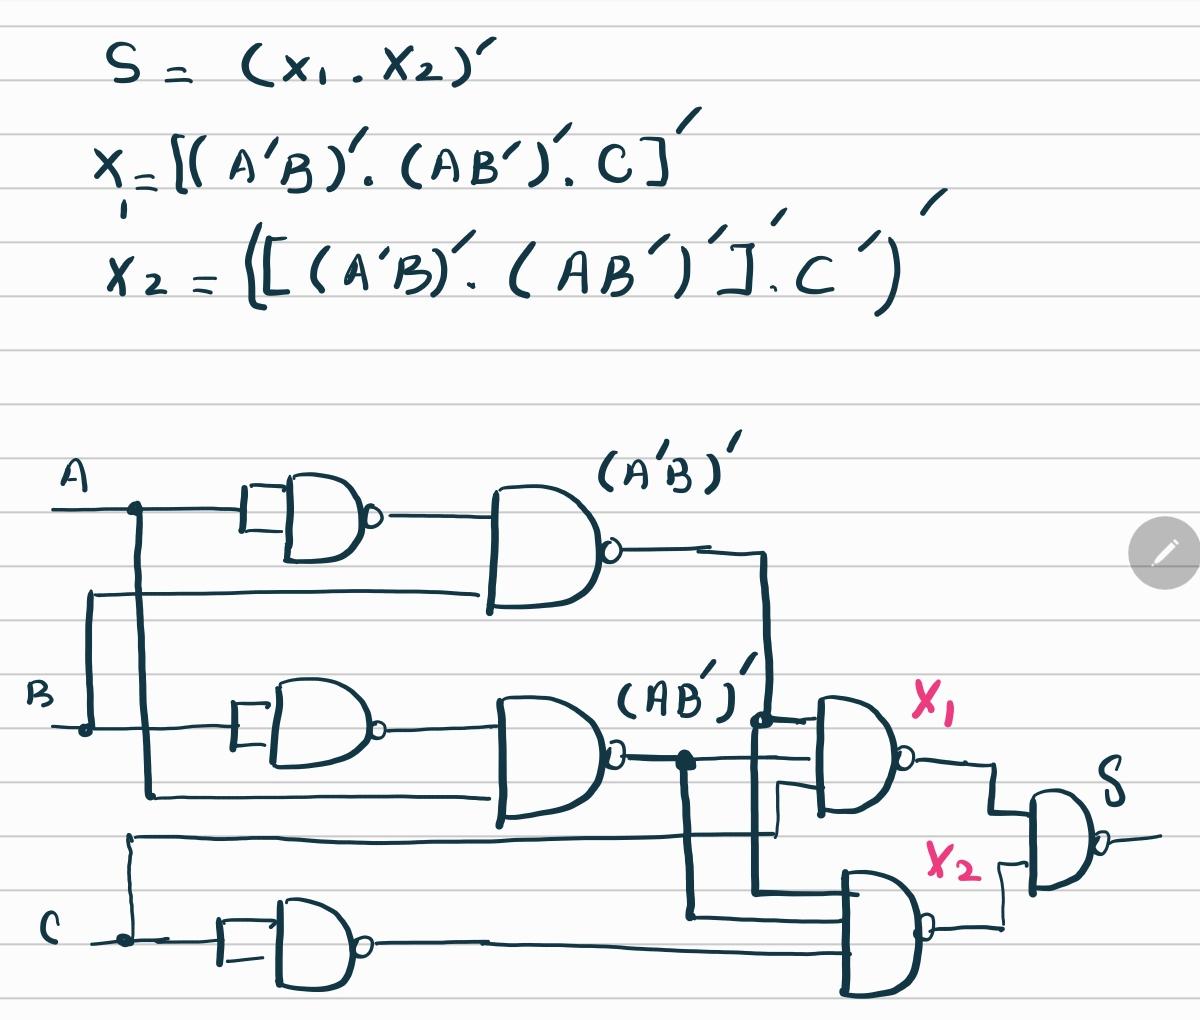 S = (x₁ . x₂)′
x₁ = [(A′B)′. (AB′)′. C]′
x₂ = ([(A′B)′. (AB′)′]′. C′)′
A
(A′B)′
B
(AB′)′
X₁
S
X₂
C